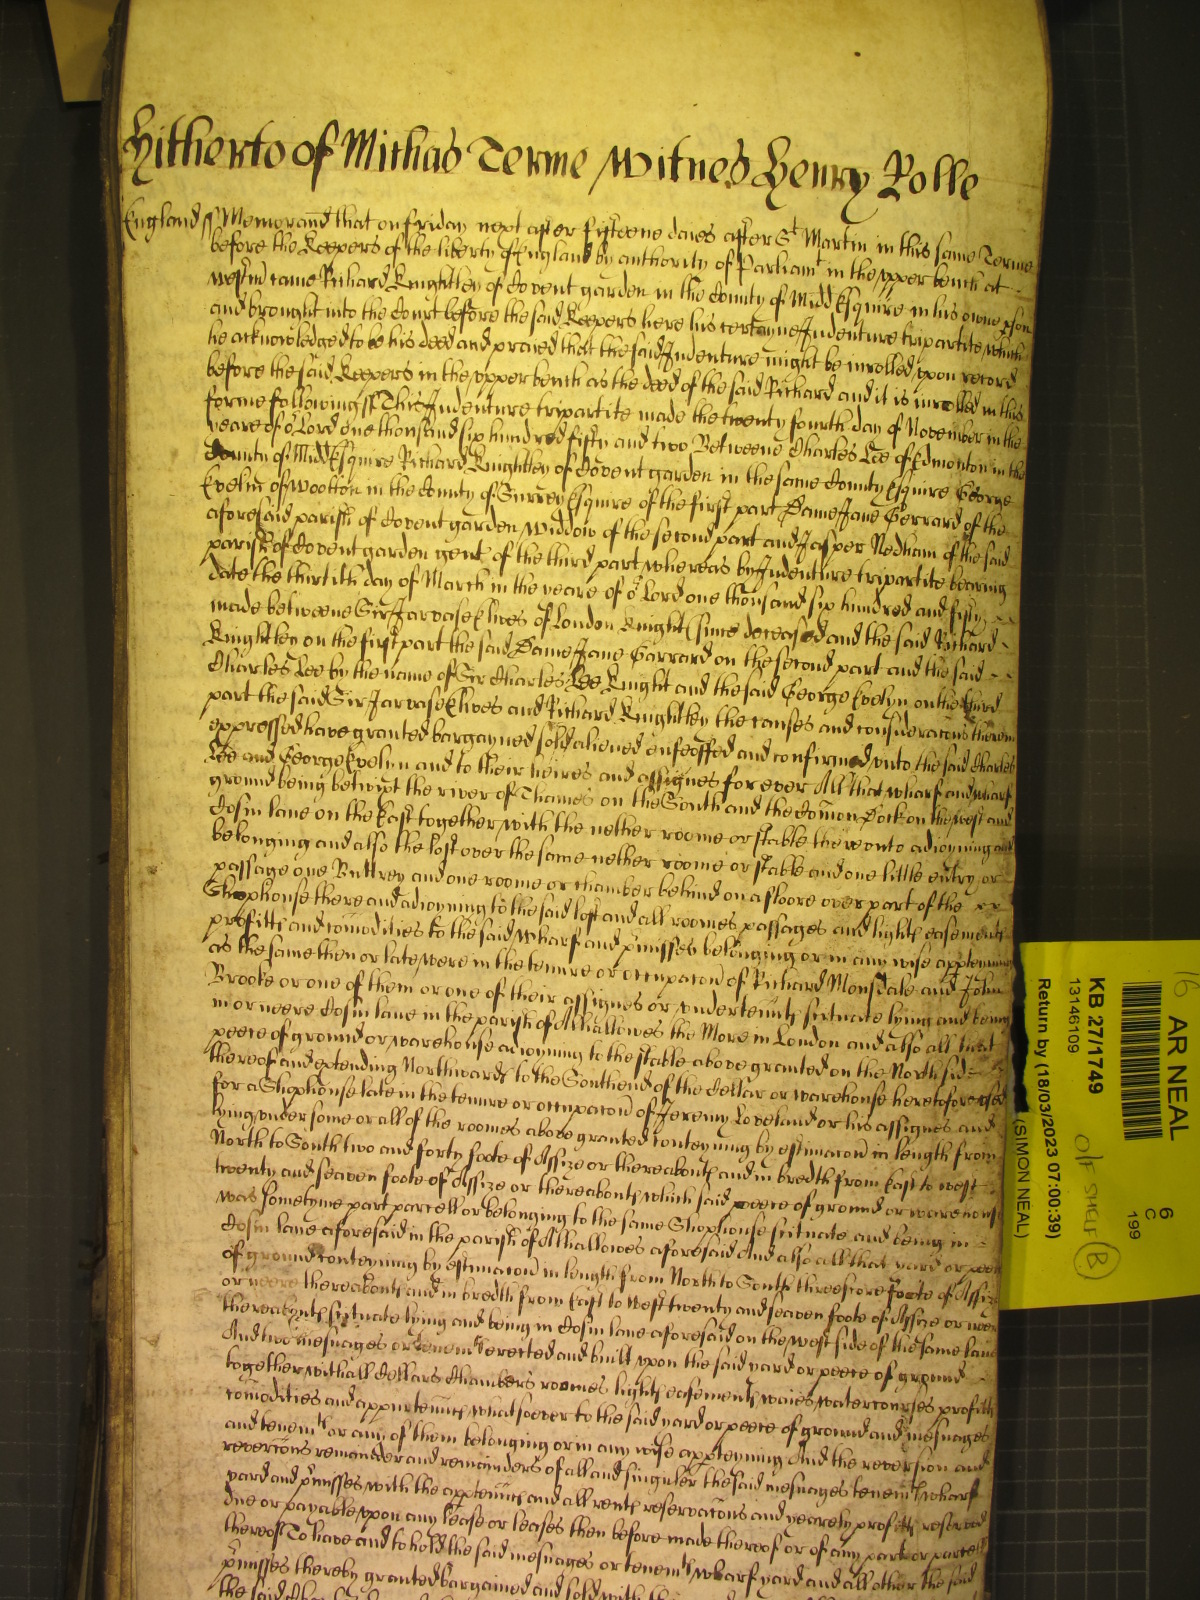 Hitherto of Michas Terme Witnes Henry Rolle
England ss Memorand that on Friday next after fifteene daies after St Martin in this same Terme
before the Keepers of the liberty of England by authority of Parliamt in the upper bench at
Westm came Richard Knightley of Covent garden in the County of Midd Esquire in his owne pson
and brought into the Court before the said Keepers here his certayne Indenture tripartite which
he acknowledged to be his deed and praied that the said Indenture might be inrolled upon record
before the said Keepers in the upper bench as the deed of the said Richard and it is inrolled in this
forme following ss This Indenture tripartite made the twenty fourth day of November in the
yeare of or Lord one thousand six hundred fifty and two Betweene Charles Lee of Edmonton in the
County of Midd Esquire Richard Knightley of Covent garden in the same County Esquire George
Evelin of Wootton in the County of Surrey Esquire of the first part Dame Jane Gerrard of the
aforesaid parish of Covent garden Widdow of the second part and Jasper Nedham of the said
parish of Covent garden gent of the third part whereas by Indenture tripartite bearing
date the thirtith day of March in the yeare of or Lord one thousand six hundred and fifty
made betweene Sir Jarvase Elwes of London Knight (since deceased and the said Richard
Knightley on the first part the said Dame Jane Garrard on the second part and the said
Charles Lee by the name of Sir Charles Lee Knight and the said George Evelyn on the third
part the said Sir Jarvase Elwes and Richard Knightley the causes and consideracons therein
expressed have granted bargayned sold aliened enfeoffed and confirmed unto the said Charles
Lee and George Evelyn and to their heires and assignes for ever All that wharf and wharf
ground being betwixt the river of Thames on the South and the Comon Dock on the west and
Cosin lane on the East together with the nether roome or stable thereonto adioyning and
belonging and also the loft over the same nether roome or stable and one little entry or
passage one Buttrey and one roome or chamber behind on a floore over part of the
Shophouse there and adioyning to the said loft and all roomes passages and lights easements
profitts and comodities to the said wharf and pmisses belonging or in any wise apptenning
as the same then or late were in the tenure or occupacon of Richard Monsdale and John
Brooke or one of them or one of their assignes or undertents scituate lying and being
in or neere Cosin lane in the parish of Alhallowes the More in London and also all that
peece of ground or warehouse adioyning to the stable above granted on the North side
thereof and extending Northwards to the Southend of the Cellar or warehouse heretofore used
for a Shophouse late in the tenure or occupacon of Jeremy Loveland or his assignes and
lying under some or all of the roomes above granted conteyning by estimacon in length from
North to South two and forty foote of Assize or thereabouts and in bredth from East to west
twenty and seaven foote of Assize or thereabouts which said peece of ground or warehouse
was sometyme part parcell or belonging to the same Shophouse scituate and being in
Cosin lane aforesaid in the parish of Alhallowes aforesaid And also all that yard or peece
of ground conteyning by estimacon in length from North to South threescore foote of Assize
or neere thereabouts and in bredth from East to west twenty and seaven foote of Assize or neere
thereabouts scituate lying and being in Cosin lane aforesaid on the west side of the same lane
And two mesuages or tenemts erected and built upon the said yard or peece of ground
together with all Cellars Chambers roomes lights easements waies watercourses profitts
comodities and appurtenncs whatsoever to the said yard or peece of ground and mesuages
and tenemts or any of them belonging or in any wise apptenning And the reversion and
revercons remainder and remainders of all and singuler the said mesuages tenemts wharf
yard and pmisses with the apptenncs and all rents reservacons and yearely profitts reserved
due or payable upon any lease or leases then before made thereof or of any part or parcell
thereof To have and to hold the said mesuages or tenemts wharf yard and all other the said
pmisses thereby granted bargained and sold with
the said
16 AR NEAL
6
C
199
KB 27/1749
13146109
O/F SHELF B
Return by (18/03/2023 07:00:39)
(SIMON NEAL)